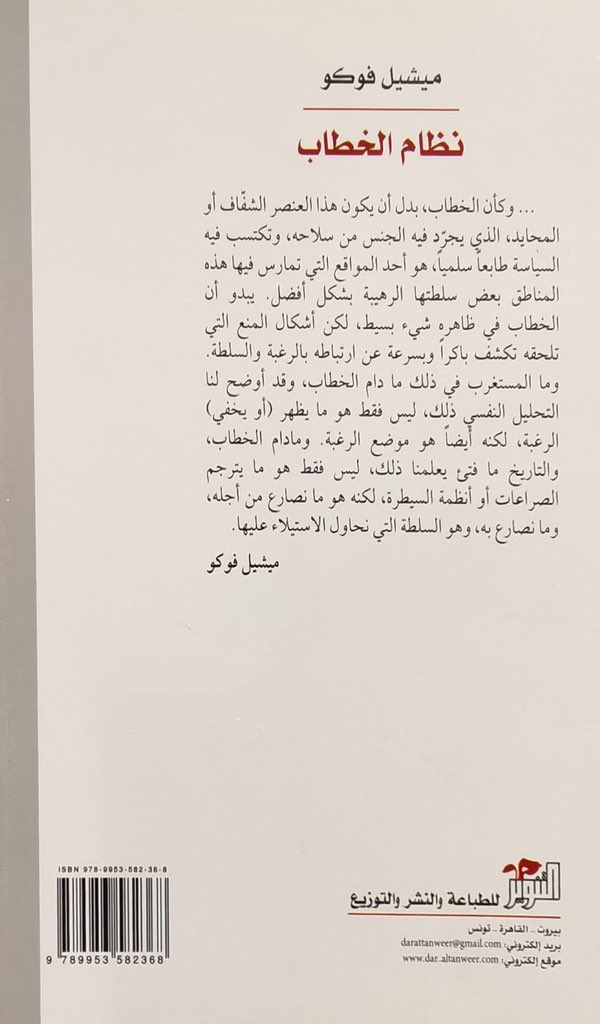 ميشيل فوكو
نظام الخطاب
... وكأن الخطاب، بدل أن يكون هذا العنصر الشفّاف أو
المحايد، الذي يجرّد فيه الجنس من سلاحه، وتكتسب فيه
السياسة طابعاً سلمياً، هو أحد المواقع التي تمارس فيها هذه
المناطق بعض سلطتها الرهيبة بشكل أفضل. يبدو أن
الخطاب في ظاهره شيء بسيط، لكن أشكال المنع التي
تلحقه تكشف باكراً وبسرعة عن ارتباطه بالرغبة والسلطة.
وما المستغرب في ذلك ما دام الخطاب، وقد أوضح لنا
التحليل النفسي ذلك، ليس فقط هو ما يظهر (أو يخفي)
الرغبة، لكنه أيضاً هو موضع الرغبة. ومادام الخطاب،
والتاريخ ما فتئ يعلمنا ذلك، ليس فقط هو ما يترجم
الصراعات أو أنظمة السيطرة، لكنه هو ما نصارع من أجله،
وما نصارع به، وهو السلطة التي نحاول الاستيلاء عليها.
ميشيل فوكو
ISBN 978-9953-582-36-8
9 789953 582368
التنوير للطباعة والنشر والتوزيع
بيروت - القاهرة - تونس
بريد إلكتروني: darattanweer@gmail.com
موقع إلكتروني: www.dar_altanweer.com